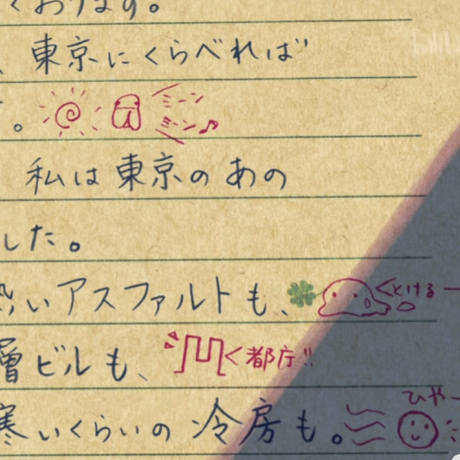 くおります。
、東京にくらべれば
。ミーン
ミーン♪
私は東京のあの
した。
いアスファルトも、とけるー
層ビルも、都庁!!
ひやー
寒いくらいの冷房も。